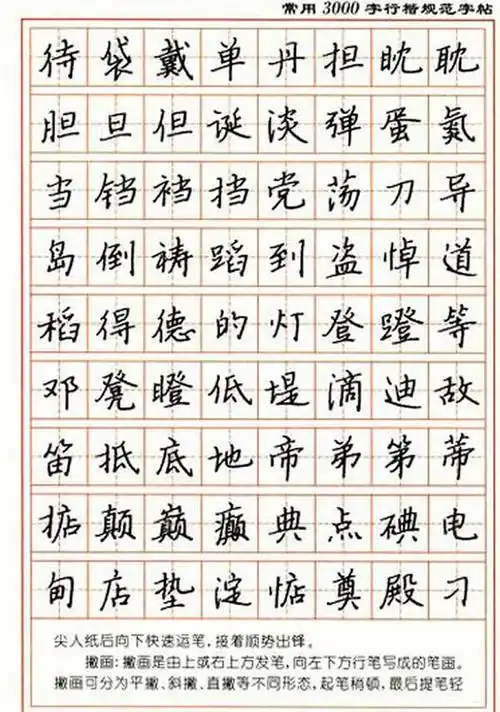 常用3000字行楷规范字帖
待袋戴单丹担眈耽
胆旦但诞淡弹蛋氮
当铛裆挡党荡刀导
岛倒祷蹈到盗悼道
稻得德的灯登蹬等
邓凳瞪低堤滴迪敌
笛抵底地帝弟第蒂
掂颠巅癫典点碘电
甸店垫淀惦奠殿刁
尖入纸后向下快速运笔，接着顺势出锋。
撇画：撇画是由上或右上方发笔，向左下方行笔写成的笔画。
撇画可分为平撇、斜撇、直撇等不同形态，起笔稍顿，最后提笔轻